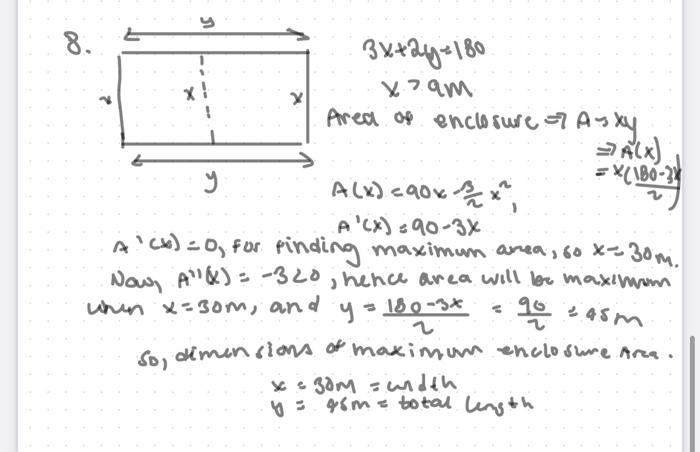 8.
y
x
x
x
y
3x+2y=180
x > 9m
Area of enclosure => A = xy
=> A(x)
= x(180-3x/2)
A(x) = 90x - 3/2 x²,
A'(x) = 90-3x
A'(x) = 0, for finding maximum area, so x = 30m.
Now, A''(x) = -3<0, hence area will be maximum
when x = 30m, and y = 180-3x/2 = 90/2 = 45m
So, dimensions of maximum enclosure Area.
x = 30m = width
y = 45m = total length